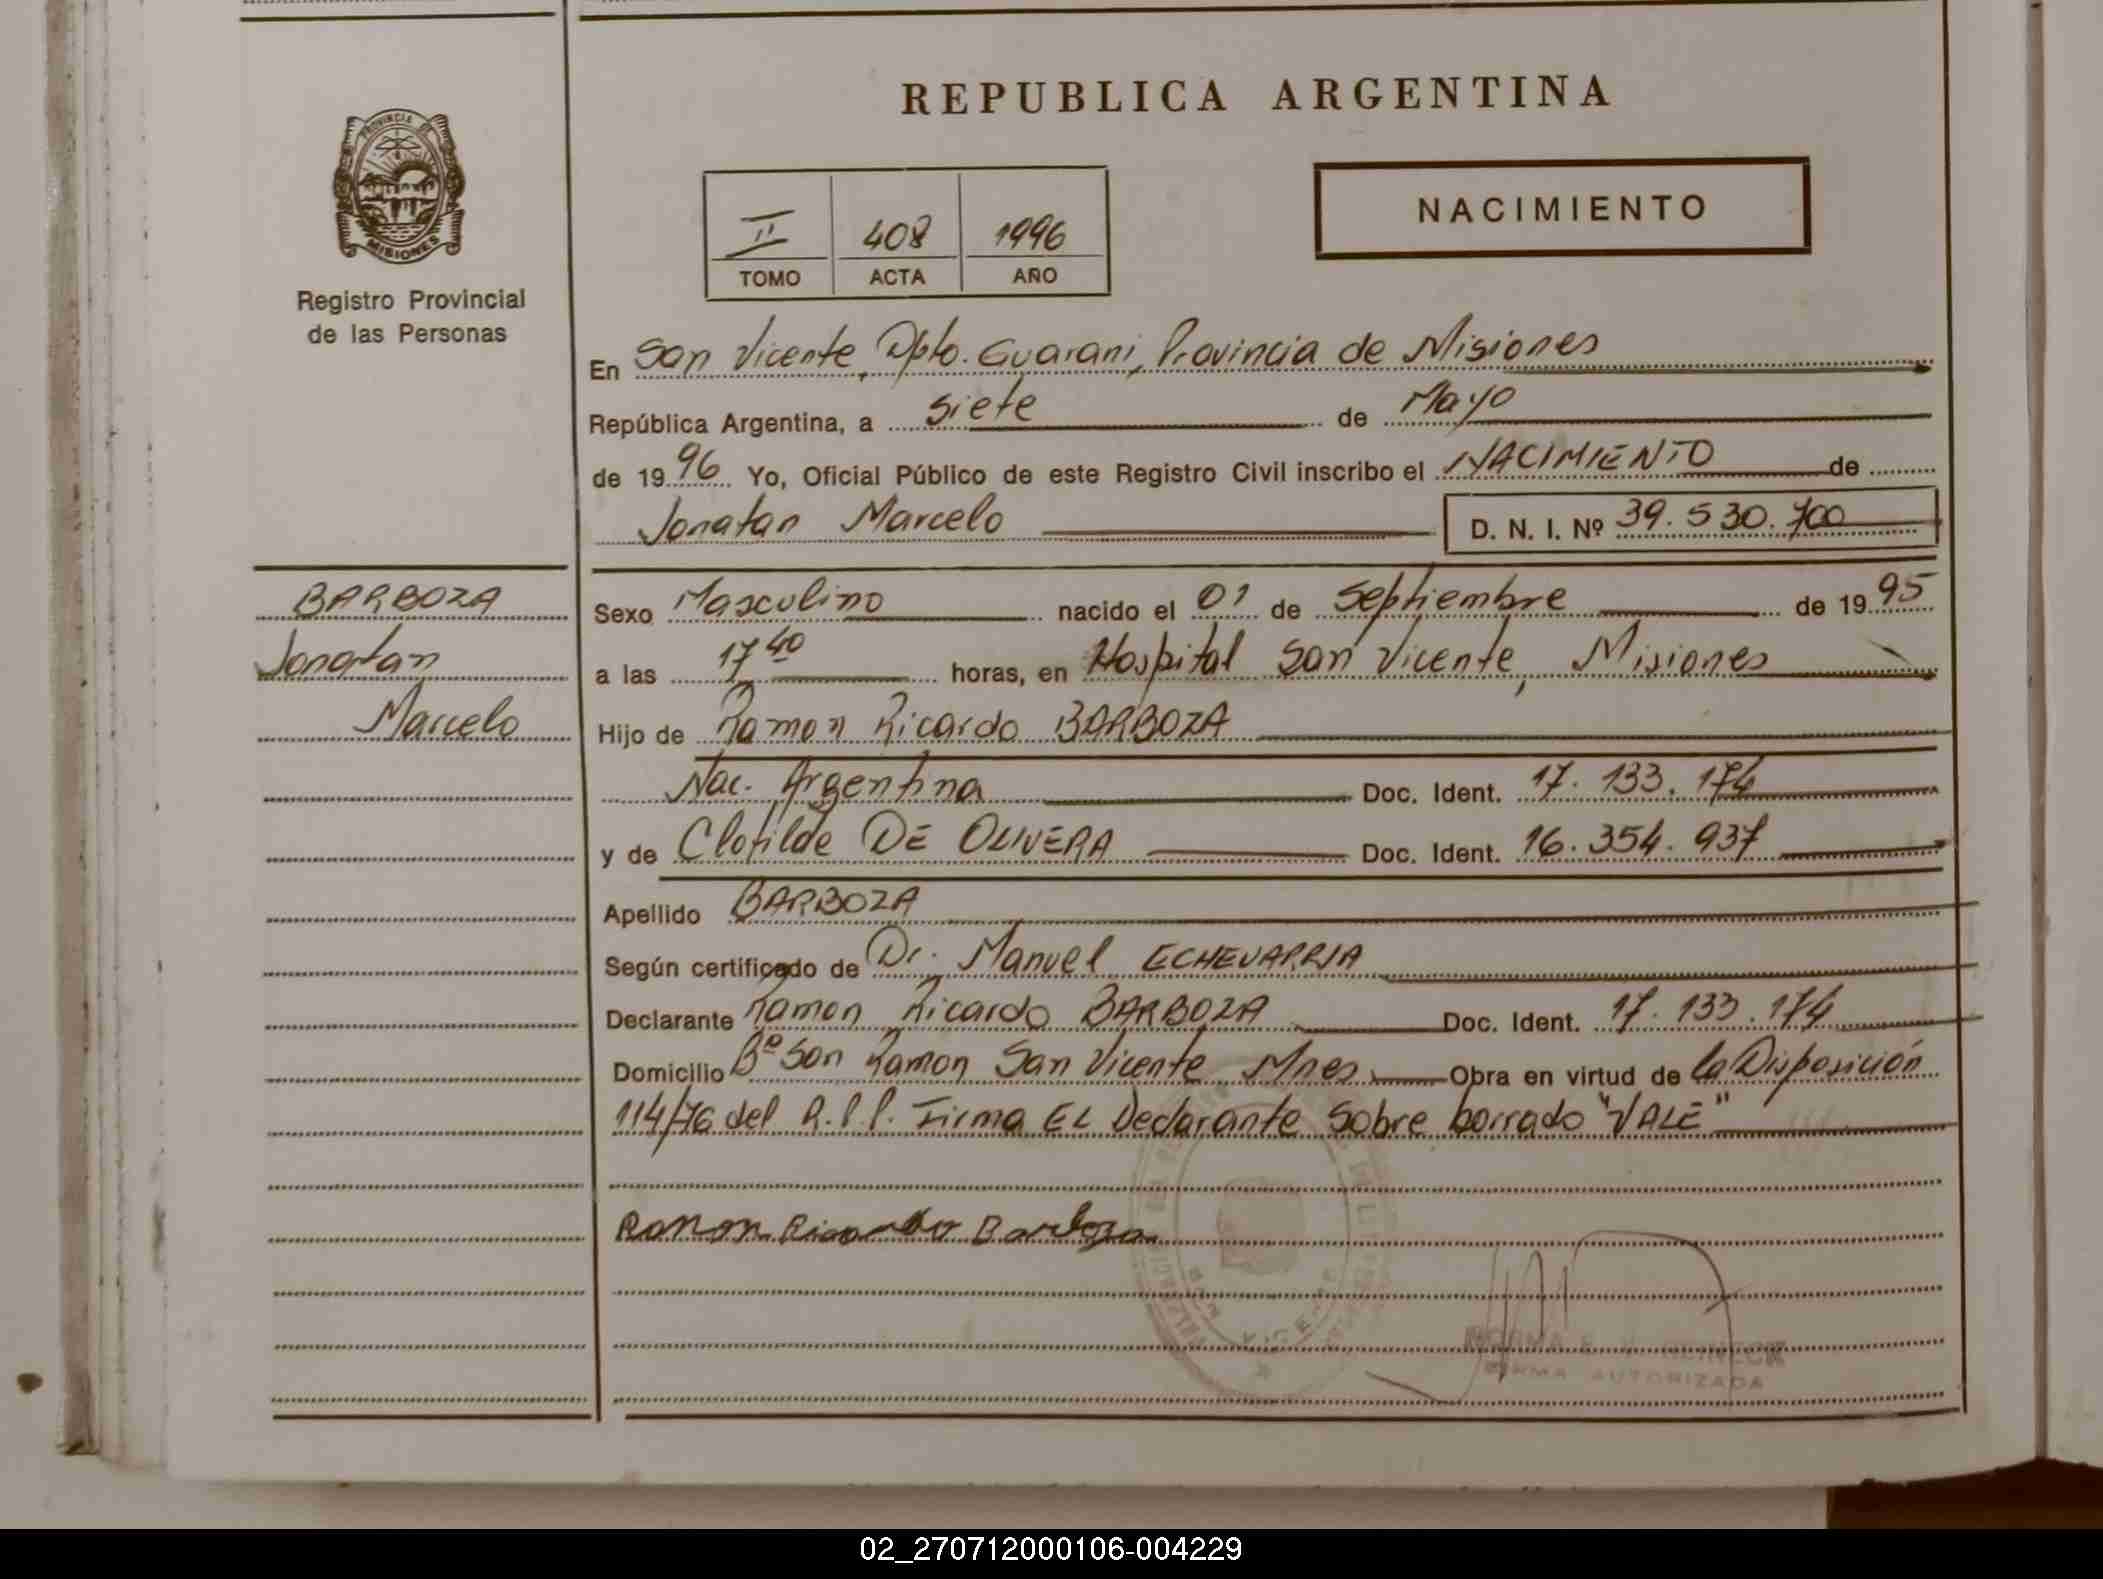 REPUBLICA ARGENTINA
PROVINCIA DE
MISIONES
Registro Provincial
de las Personas
II 408 1996
TOMO ACTA AÑO
NACIMIENTO
En San Vicente, Dpto. Guarani, Provincia de Misiones
República Argentina, a siete de Mayo
de 1996 Yo, Oficial Público de este Registro Civil inscribo el NACIMIENTO de
Jonatan Marcelo D. N. I. Nº 39.530.700
BARBOZA
Jonatan
Marcelo
Sexo Masculino nacido el 01 de Septiembre de 1995
a las 17 40 horas, en Hospital San Vicente, Misiones
Hijo de Ramon Ricardo BARBOZA
Nac. Argentina Doc. Ident. 17.133.174
y de Clotilde DE OLIVERA Doc. Ident. 16.354.937
Apellido BARBOZA
Según certificado de Dr. Manuel ECHEVARRIA
Declarante Ramon Ricardo BARBOZA Doc. Ident. 17.133.174
Domicilio Bº San Ramon San Vicente Mnes Obra en virtud de la Disposición
114/76 del R.P.P. Firma EL Declarante Sobre borrado "VALE"
Ramon Ricardo Barboza
SAN VICENTE
NORMA E.
FIRMA AUTORIZADA
02_270712000106-004229